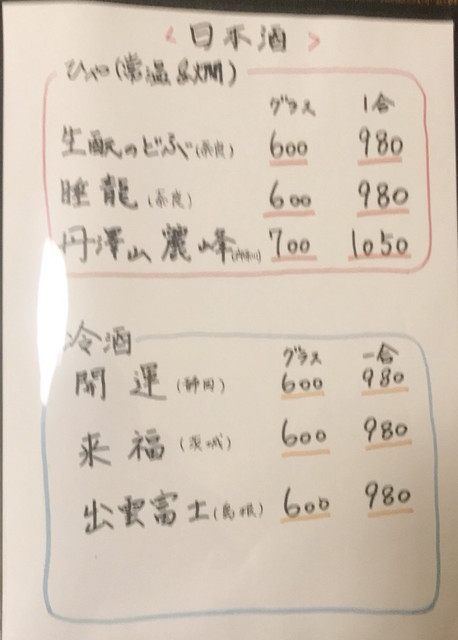 ＜日本酒＞
ひや(常温&燗)
グラス 1合
生酛のどぶ(奈良) 600 980
睡龍(奈良) 600 980
丹澤山 麗峰(神奈川) 700 1050
冷酒
グラス 一合
開運(静岡) 600 980
来福(茨城) 600 980
出雲富士(島根) 600 980